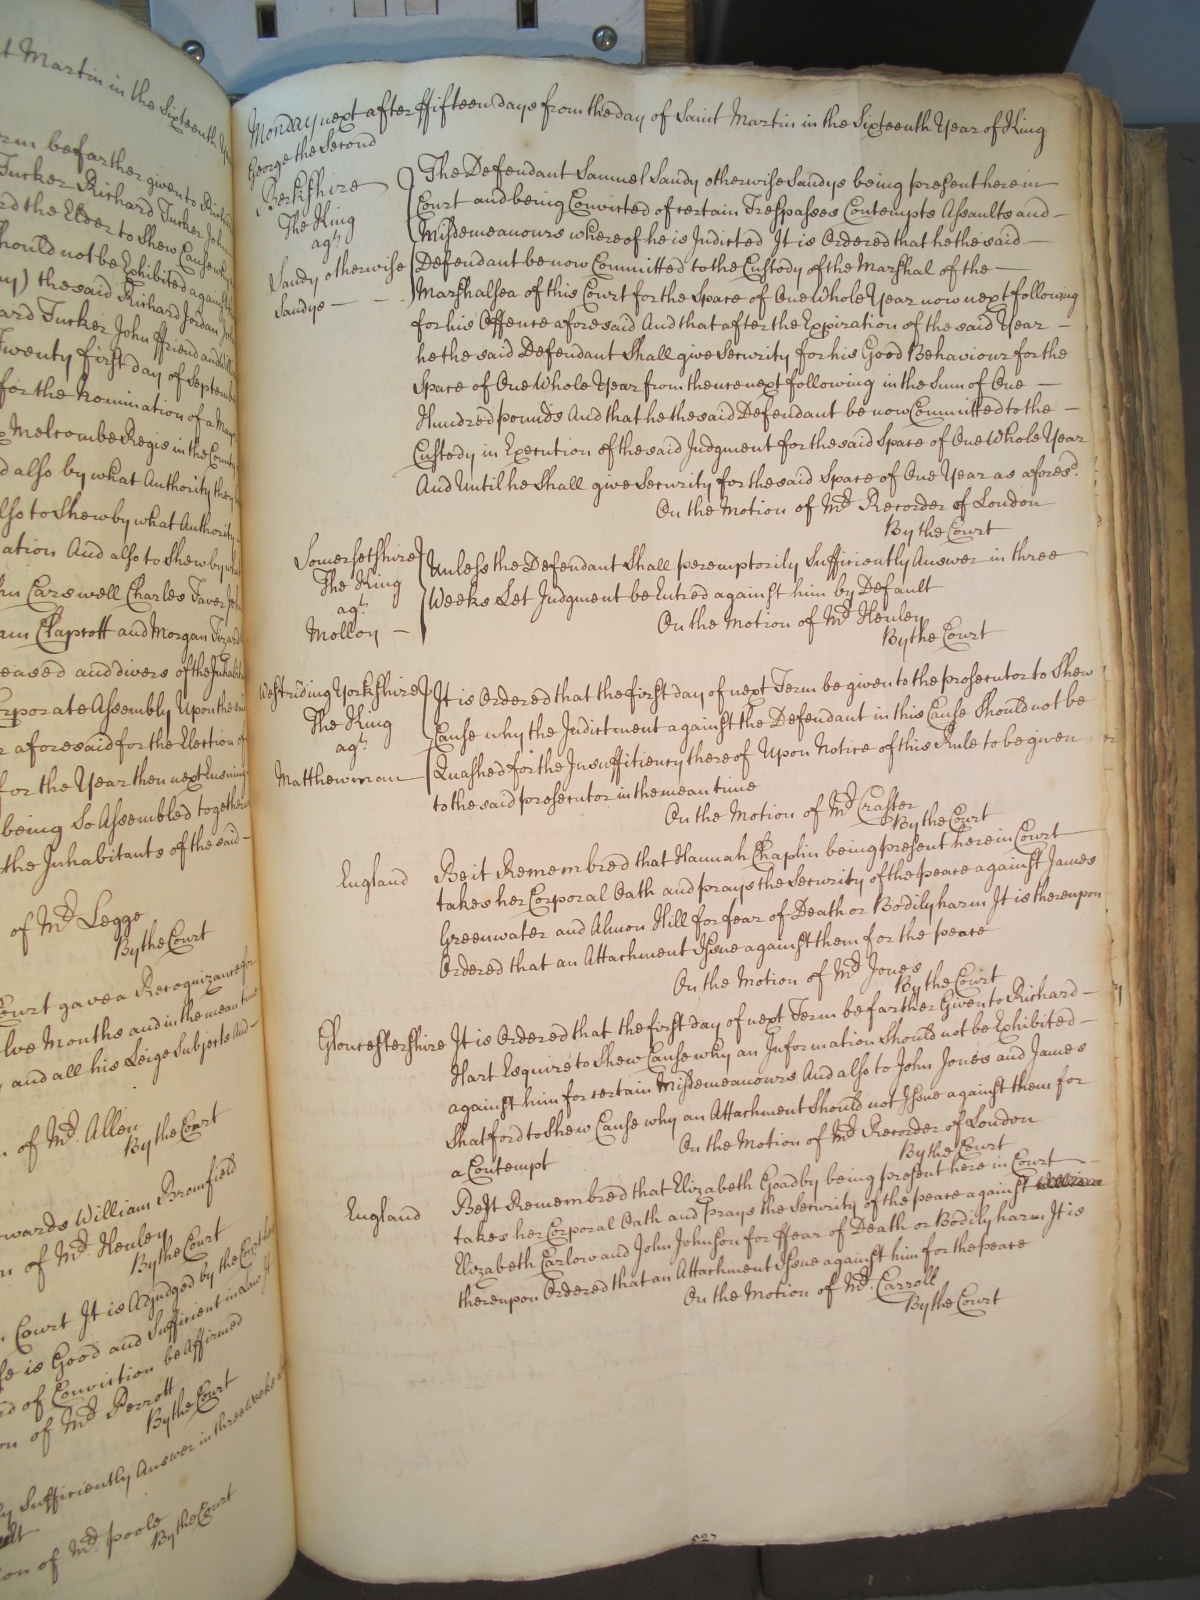 t Martin in the Sixteenth
rm be farther given to
Tucker Richard Tucker John
rd the Elder to Shew Cause why
hould not be Exhibited against
ay) the said Richard Jordan
ard Tucker John ffriend and
Twenty first day of Septemb
for the Nomination of a
Melcombe Regis in the County
d also by what Authority they
also to Shew by what Authority
ation And also to Shew by
hn Carswell Charles Taver
am Chapcott and Morgan
eased and divers of the Inhabit
orporate Assembly Upon the
r aforesaid for the Election of
for the Year then next Ensuing
being So Assembled together
the Inhabitants of the said
of Mr. Legge
By the Court
Court gave a Recognizance
lve Months and in the mean time
and all his Leige Subjects And
of Mr. Allen
By the Court
wards William Bromfield
n of Mr. Henley
By the Court
Court It is Adjudged by the Court
se is Good and Sufficient in Law
rd of Conviction be Affirmed
on of Mr. Perrott
By the Court
y Sufficiently Answer in three Weeks
lt
ion of Mr. Poole
By the Court
Monday next after ffifteen days from the day of Saint Martin in the Sixteenth Year of King
George the Second
Berkshire
The King
agt.
Sandy otherwise
Sandys
The Defendant Samuel Sandy otherwise Sandys being present here in
Court and being Convicted of certain Trespasses Contempts Assaults and
Misdemeanours whereof he is Indicted It is Ordered that he the said
Defendant be now Committed to the Custody of the Marshal of the
Marshalsea of this Court for the Space of One Whole Year now next following
for his Offence aforesaid And that after the Expiration of the said Year
he the said Defendant Shall give Security for his Good Behaviour for the
Space of One Whole Year from thence next following in the Sum of One
Hundred pounds And that he the said Defendant be now Committed to the
Custody in Execution of the said Judgment for the said Space of One Whole Year
And Until he Shall give Security for the said Space of One Year as aforesd.
On the Motion of Mr. Recorder of London
By the Court
Somersetshire
The King
agt.
Molloy
Unless the Defendant Shall peremptorily Sufficiently Answer in three
Weeks Let Judgment be Entred against him by Default
On the Motion of Mr. Henley
By the Court
Westriding Yorkshire
The King
agt.
Matthewman
It is Ordered that the first day of next Term be given to the prosecutor to Shew
Cause why the Indictment against the Defendant in this Cause Should not be
Quashed for the Insufficiency thereof Upon Notice of this Rule to be given
to the said prosecutor in the mean time
On the Motion of Mr. Craster
By the Court
England
Be it Remembred that Hannah Chaplin being present here in Court
takes her Corporal Oath and prays the Security of the peace against James
Greenwater and Almon Hill for fear of Death or Bodily harm It is thereupon
Ordered that an Attachment Issue against them for the peace
On the Motion of Mr. Jones
By the Court
Gloucestershire
It is Ordered that the first day of next Term be farther Given to Richard
Hart Esquire to Shew Cause why an Information Should not be Exhibited
against him for certain Misdemeanours And also to John Jones and James
Shatford to Shew Cause why an Attachment Should not Issue against them for
a Contempt
On the Motion of Mr. Recorder of London
By the Court
England
Be It Remembred that Elizabeth Goadby being present here in Court
takes her Corporal Oath and prays the Security of the peace against
Elizabeth Carlow and John Johnson for ffear of Death or Bodily harm It is
thereupon Ordered that an Attachment Issue against him for the peace
On the Motion of Mr. Carroll
By the Court
527